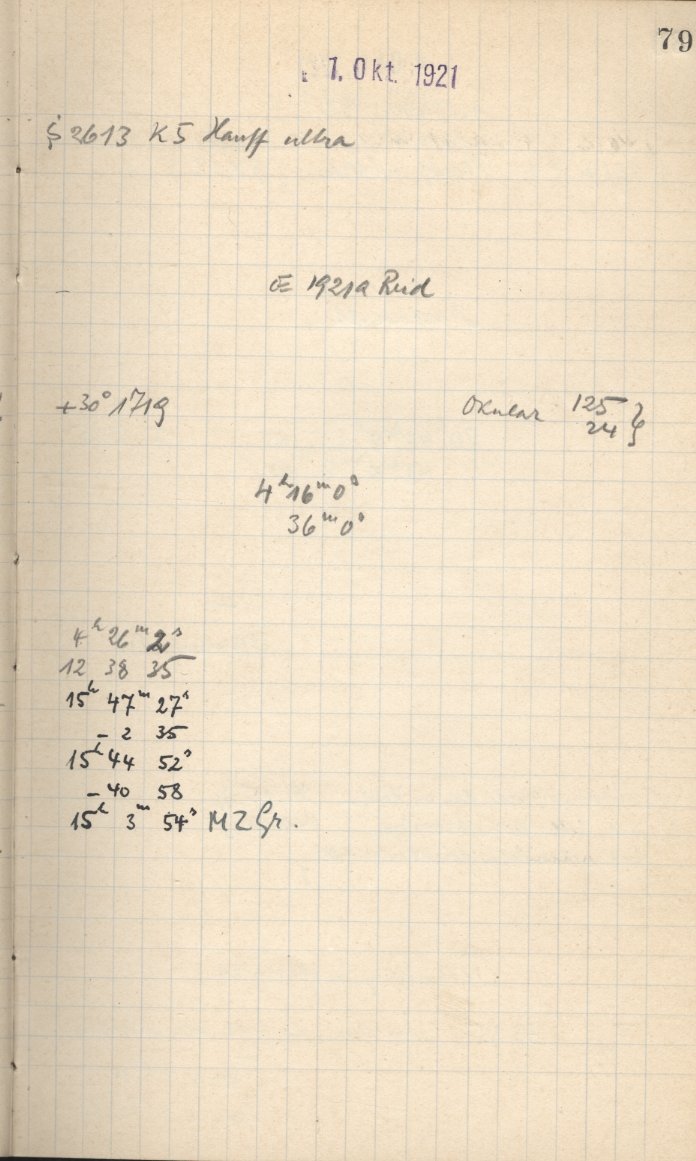 79
7. Okt. 1921
2613 K5 Hauff ultra
1921a Reid
+30° 1719
Okular 125
24
4ʰ16ᵐ0ˢ
36ᵐ0ˢ
4ʰ 26ᵐ 2ˢ
12 38 35
15ʰ 47ᵐ 27ˢ
- 2 35
15ʰ 44 52ˢ
- 40 58
15ʰ 3ᵐ 54ˢ MZGr.